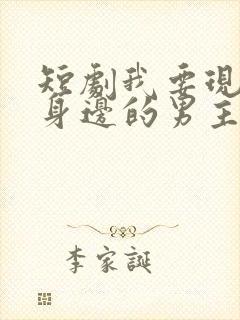 短劇我要現
身邊的男主
李家誕